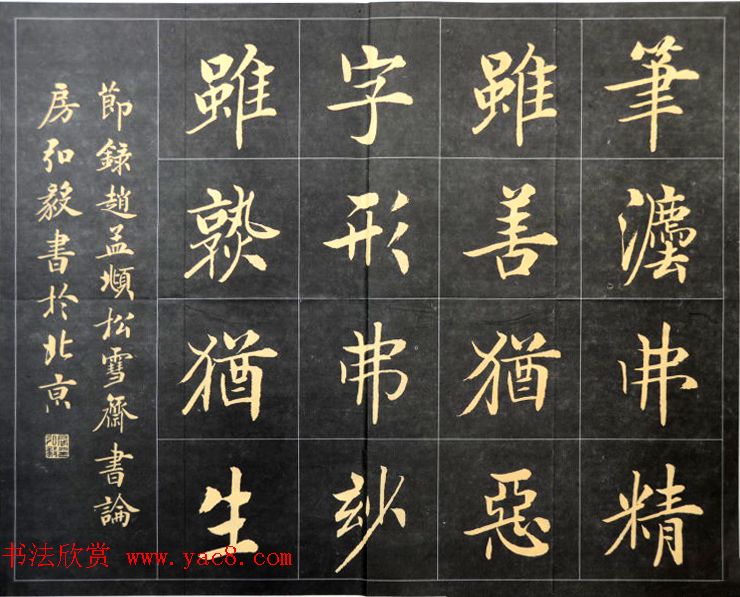 筆灋弗精
雖善猶惡
字形弗玅
雖熟猶生
節録趙孟頫松雪齋書論
房弘毅書於北亰
书法欣赏 www.yac8.com